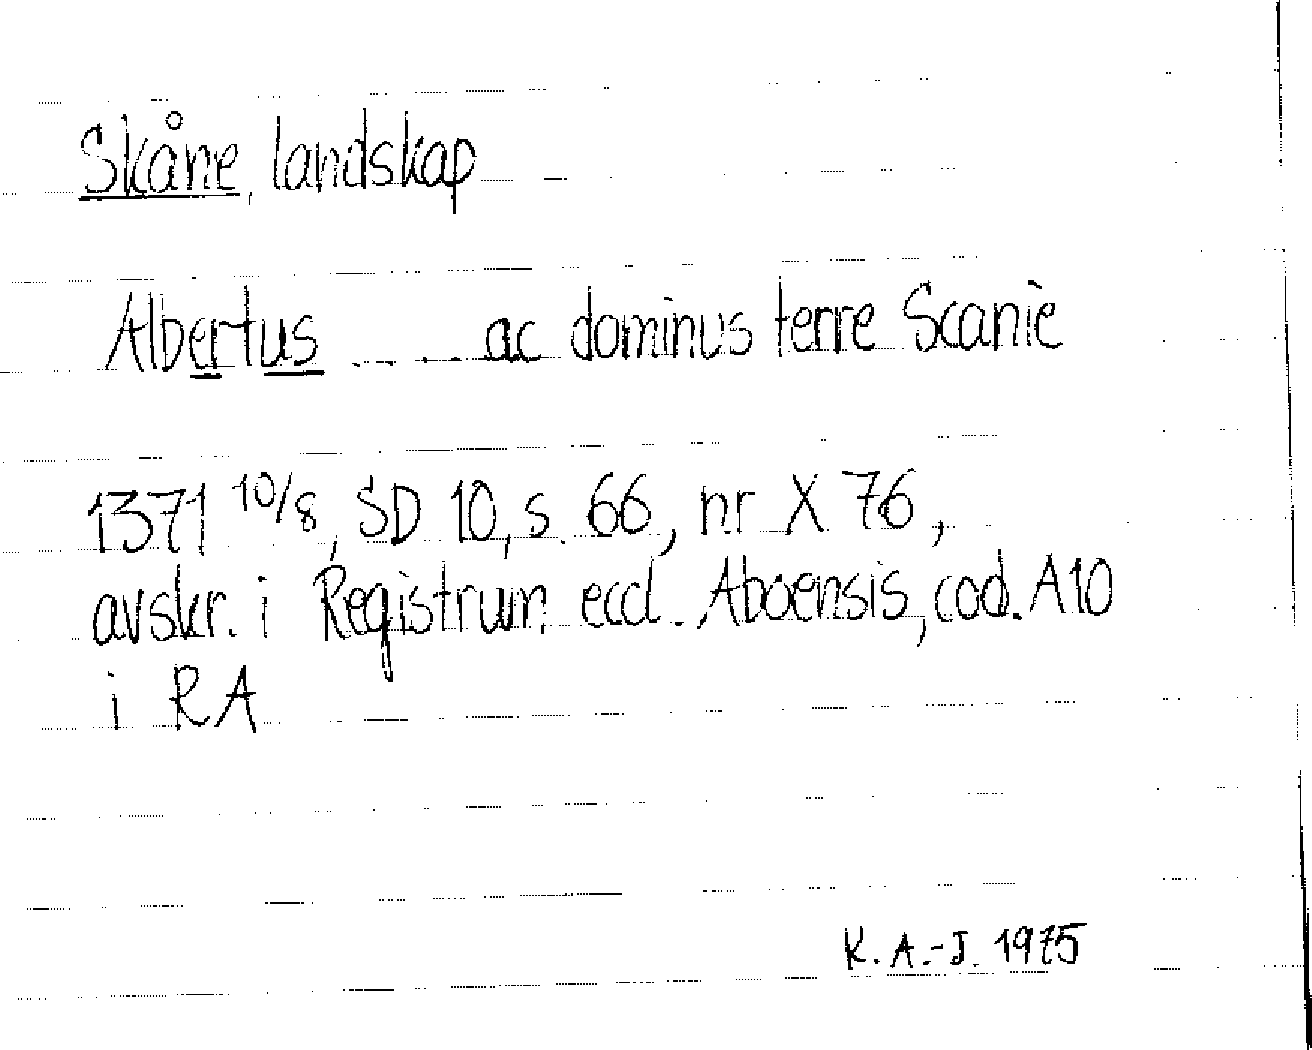 Skåne, landskap
Albertus ..... ac dominus terre Scanie
1371 10/8, SD 10, s. 66, nr X 76,
avskr. i Registrum eccl. Aboensis, cod. A10
i RA
K. A.-J. 1975